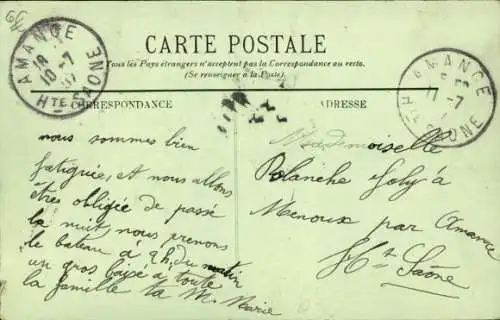 AMANCE
18
10-7
07
Hte SAONE
CARTE POSTALE
Tous les Pays étrangers n'acceptent pas la Correspondance au recto.
(Se renseigner à la Poste).
CORRESPONDANCE
ADRESSE
AMANCE
11-7
Hte SAONE
nous sommes bien
fatiguée, et nous allons
êtres obligée de passé
la nuit, nous prenons
le bateau à 2h. du matin
un gros baisé à toute
la famille ta M. Marie
Mademoiselle
Blanche Joly à
Menoux par Amance
Hte Saône